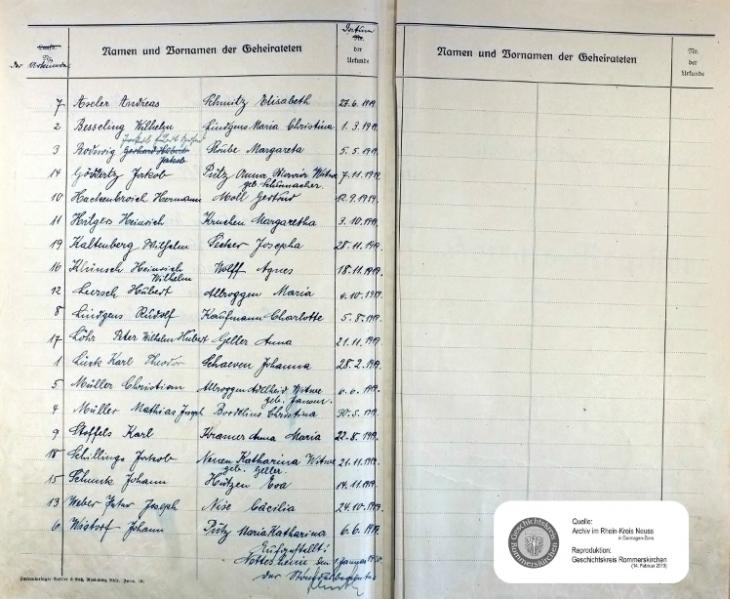 Namen und Vornamen der Geheirateten
Datum
der
Urkunde
7 Aseler Andreas Schmitz Elisabeth 27.6.1919.
2 Besseling Wilhelm Lindgens Maria Christina 1.3.1919.
3 Rodwig Jakob Margareta 5.5.1919.
14 Jakob Pütz Anna Witwe 7.11.1919.
geb. Schumacher.
10 Hackenbroich Hermann Moll Gertrud 12.9.1919.
11 Hilgers Heinrich Kruchen Margaretha 3.10.1919.
19 Kaltenberg Wilhelm Josepha 28.11.1919.
16 Heinrich Wolff Agnes 18.11.1919.
Wilhelm
12 Lersch Hubert Albroggen Maria 10.1919.
8 Lindgens Rudolf Kaufmann Charlotte 5.8.1919.
17 Löhr Peter Wilhelm Hubert Geller Anna 21.11.1919.
1 Lück Karl Theodor Schaeven Johanna 28.2.1919.
5 Müller Christian Albroggen Adelheid Witwe 6.6.1919.
geb.
4 Müller Mathias Joseph Christina 30.5.1919.
9 Stoffels Karl Kramer Anna Maria 22.8.1919.
18 Schillings Jakob Katharina Witwe 21.11.1919.
geb. Geller.
15 Schmuck Johann Hützen Eva 14.11.1919.
13 Weber Peter Joseph Nise Cäcilia 24.10.1919.
6 Wistorf Johann Pütz Maria Katharina 6.6.1919.
Aufgestellt:
Nettesheim den 1. Januar 1920
der Standesbeamte
Namen und Vornamen der Geheirateten
Nr.
der
Urkunde
Geschichtskreis
Rommerskirchen
Quelle:
Archiv im Rhein-Kreis Neuss
in Dormagen-Zons
Reproduktion:
Geschichtskreis Rommerskirchen